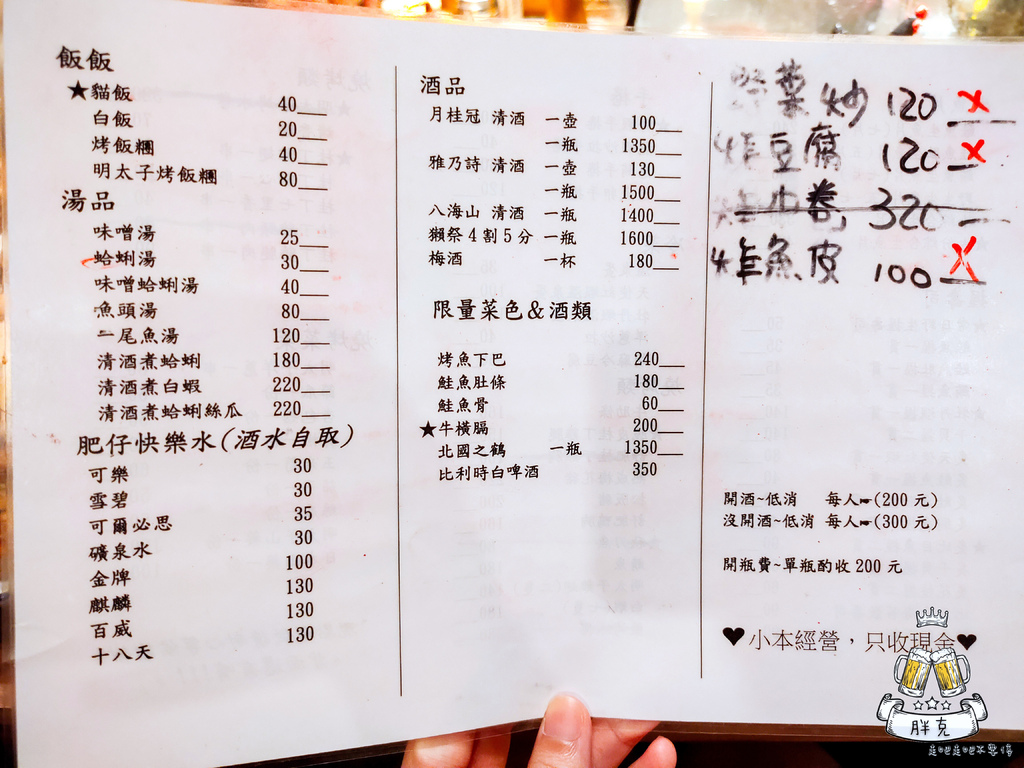 飯飯
★貓飯 40
白飯 20
烤飯糰 40
明太子烤飯糰 80
湯品
味噌湯 25
蛤蜊湯 30
味噌蛤蜊湯 40
魚頭湯 80
二尾魚湯 120
清酒煮蛤蜊 180
清酒煮白蝦 220
清酒煮蛤蜊絲瓜 220
肥仔快樂水(酒水自取)
可樂 30
雪碧 30
可爾必思 35
礦泉水 30
金牌 100
麒麟 130
百威 130
十八天 130
酒品
月桂冠 清酒 一壺 100
一瓶 1350
雅乃詩 清酒 一壺 130
一瓶 1500
八海山 清酒 一瓶 1400
獺祭4割5分 一瓶 1600
梅酒 一杯 180
限量菜色&酒類
烤魚下巴 240
鮭魚肚條 180
鮭魚骨 60
★牛橫膈 200
北國之鶴 一瓶 1350
比利時白啤酒 350
菜炒 120 X
炸豆腐 120 X
卷 320
炸魚皮 100 X
開酒~低消 每人☛(200元)
沒開酒~低消 每人☛(300元)
開瓶費~單瓶酌收200元
♥小本經營，只收現金♥
胖克